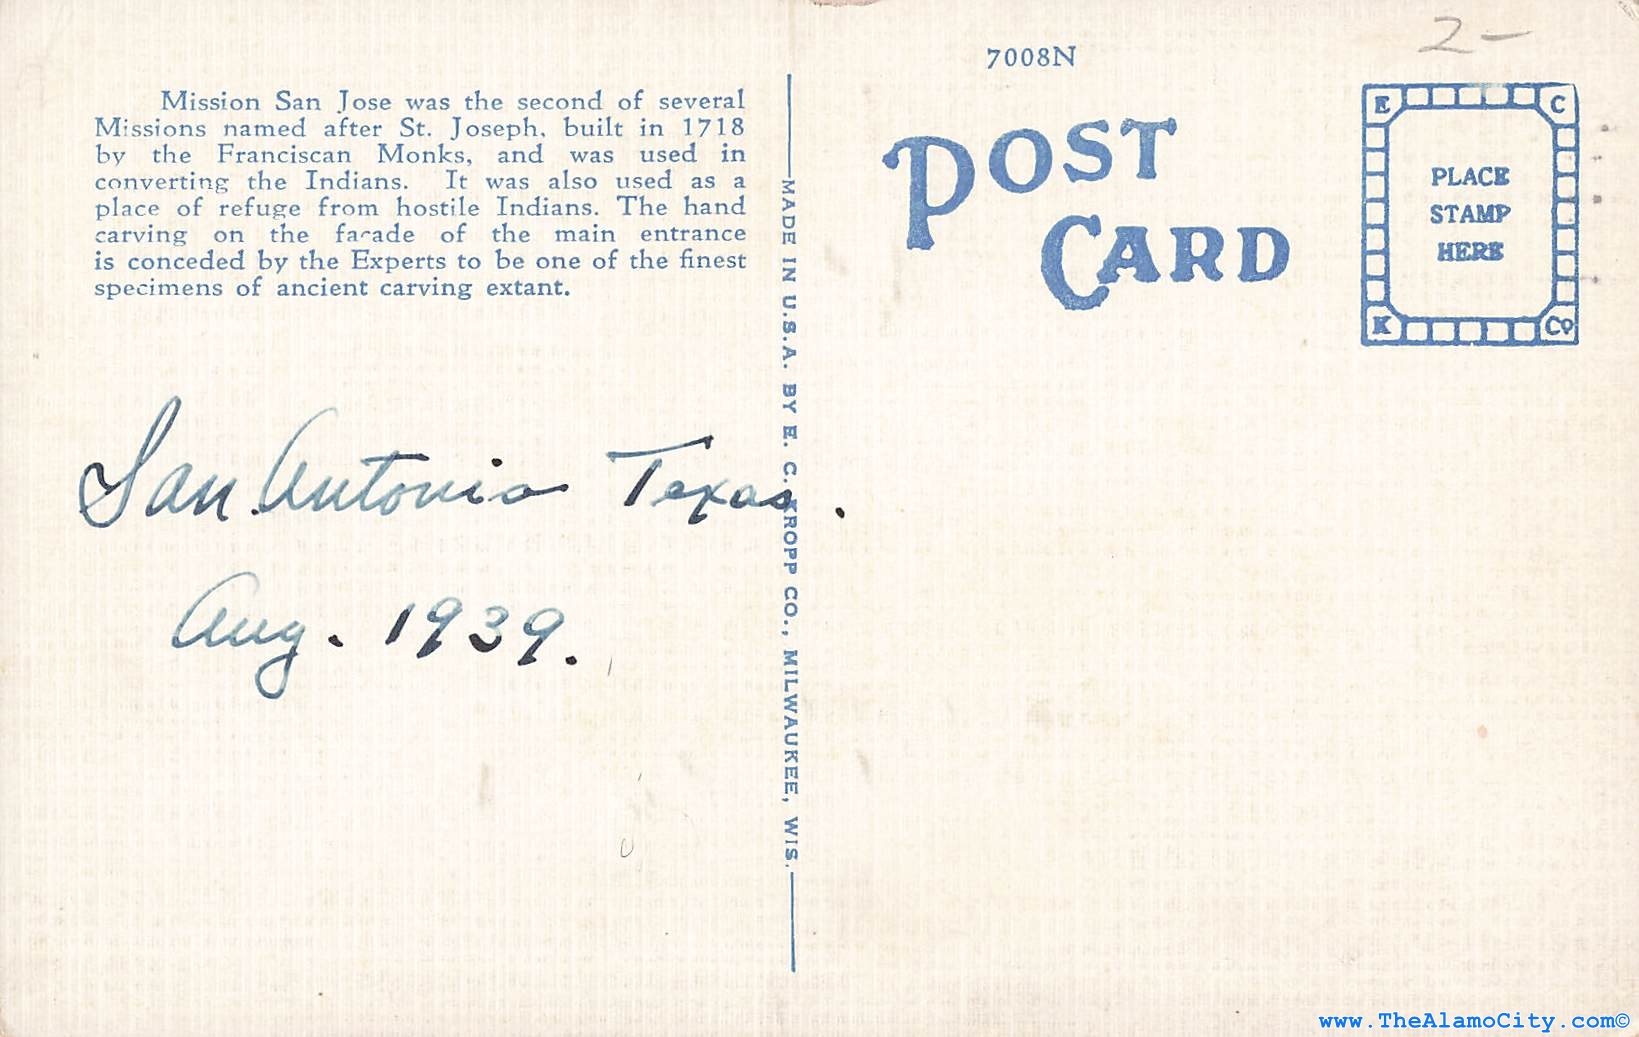 7008N
2-
Mission San Jose was the second of several
Missions named after St. Joseph, built in 1718
by the Franciscan Monks, and was used in
converting the Indians. It was also used as a
place of refuge from hostile Indians. The hand
carving on the facade of the main entrance
is conceded by the Experts to be one of the finest
specimens of ancient carving extant.
San Antonio Texas.
Aug. 1939.
MADE IN U.S.A. BY E. C. KROPP CO., MILWAUKEE, WIS.
POST
CARD
E C
PLACE
STAMP
HERE
K Co
www.TheAlamoCity.com©